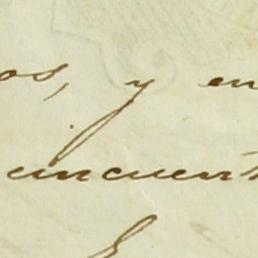 os, y en
cincuent